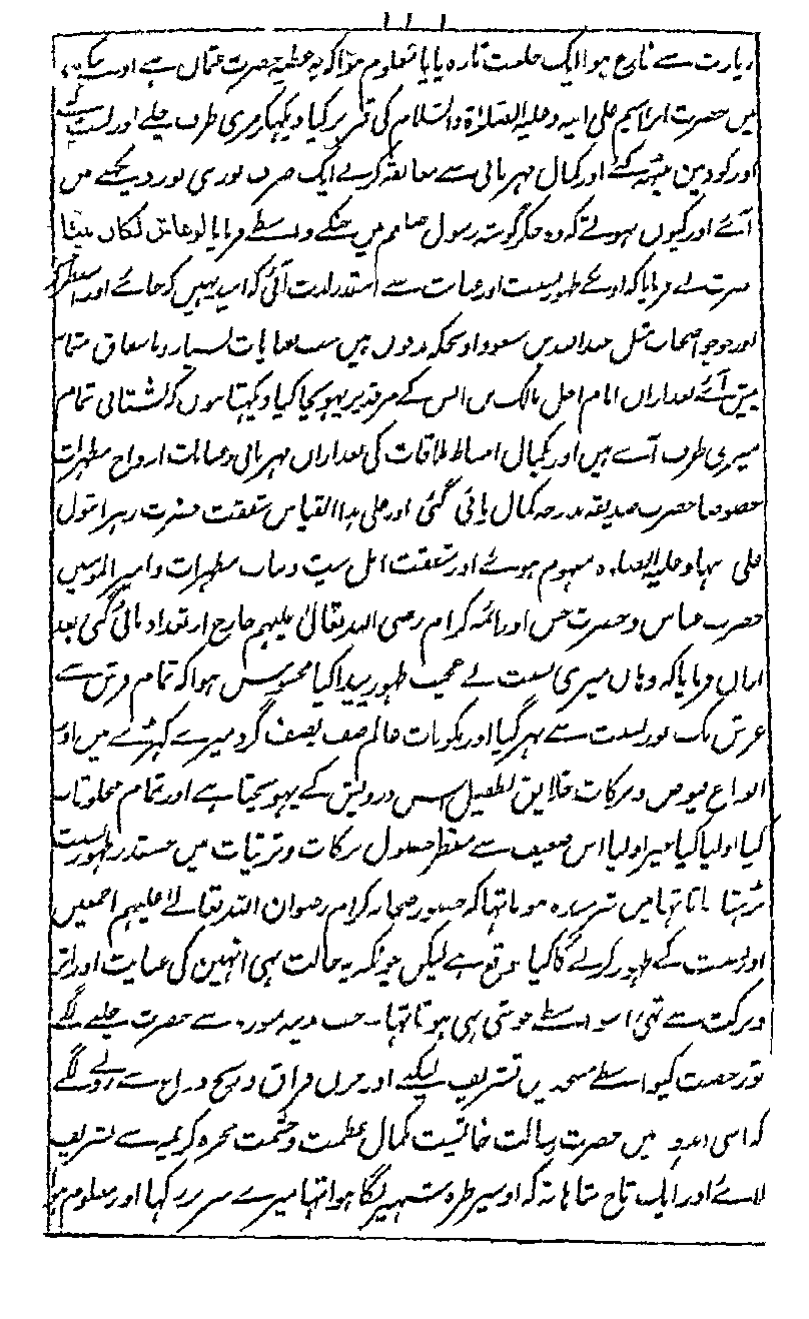 زیارت سے فارغ ہوا ایک خلعت تازہ پایا معلوم ہوا کہ یہ عطیہ حضرت عثمان ہے اور
میں حضرت ابراہیم علی ابیہ وعلیہ الصلوٰۃ والسلام کی قبر پر گیا دیکہا کہ میری طرف چلے اور
اور گود میں کمال مہربانی سے معانقہ کر کے ایک صرف نوری نور دیکہنے میں
آئے اور کیوں نہوتے کہ وہ جگر گوشہ رسول صلعم ہیں جنکے واسطے فرمایا لو عاش لکان نبیا
حضرت نے فرمایا کہ اونکے ظہور نسبت اور عنایت سے اسقدر لذت آئی کہ
اور جو جو اصحاب مثل عبد اللہ بن مسعود اونکے مدفون ہیں سب بعنایات بسیار
پیش آئے بعد ازاں امام اجل مالک بن انس کے مرقد پر پہونچا گیا دیکہتا ہوں کہ تمام
میری طرف آئے ہیں اور بکمال انبساط ملاقات کی بعد ازاں مہربانی و عنایت ازواج مطہرات
خصوصا حضرت صدیقہ بدرجہ کمال پائی گئی اور علی ہذا القیاس شفقت حضرت زہرا بتول
علی ابیہا وعلیہا الصلوۃ مفہوم ہوئے اور شفقت اہل بیت و بنات مطہرات و امیر المومنین
حضرت عباس و حضرت حسن اور ائمہ کرام رضی اللہ تعالیٰ علیہم خارج از تعداد پائی گئی بعد
ازاں فرمایا کہ وہاں میری نسبت نے عجیب ظہور پیدا کیا محسوس ہوا کہ تمام فرش سے
عرش تک نور نسبت سے بہر گیا اور مکونات عالم صف بصف گرد میرے کہڑے ہیں اور
انواع فیوض و برکات خلایق بطفیل اس درویش کے پہونچتا ہے اور تمام مخلوقات
کیا اولیا کیا غیر اولیا اس ضعیف سے منتظر حصول برکات و ترقیات ہیں جسقدر ظہور نسبت
بڑہتا جاتا تہا میں شرمندہ ہوتا تہا کہ حضور صحابہ کرام رضوان اللہ تعالے علیہم اجمعین
اور نسبت کے ظہور کرنے کا کیا موقع ہے لیکن چونکہ یہ حالت بہی انہیں کی عنایت اور اثر
و برکت سے تہی اس واسطے خوشی بہی ہوتا تہا۔ جب مدینہ منورہ سے حضرت چلنے لگے
تو رخصت کیواسطے مسجد میں تشریف لیگئے اور حزن فراق و رنج وداع سے رونے لگے
کہ اسی اندوہ میں حضرت رسالت خاتمیت کمال عظمت و حشمت حجرہ کریمہ سے تشریف
لائے اور ایک تاج شاہانہ کہ اوسپر طرہ شہپر لگا ہوا تہا میرے سر پر رکہا اور معلوم ہوا